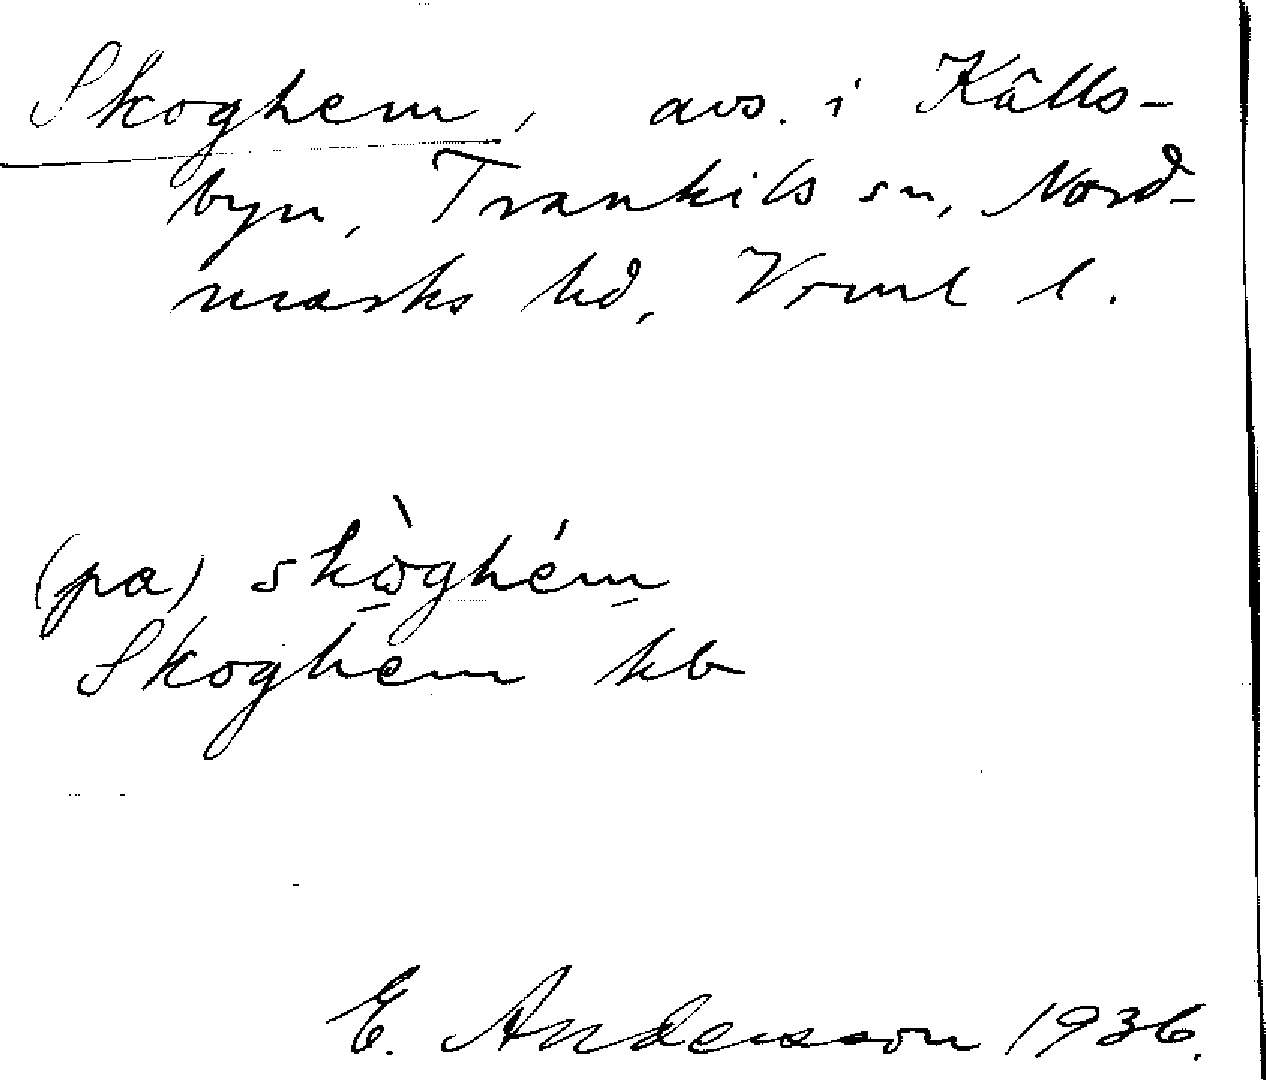 Skoghem, avs. i Källs-
byn, Trankils sn, Nord-
marks hd, Vrml l.
(pa) skòghém
Skoghem kb
E. Andersson 1936.